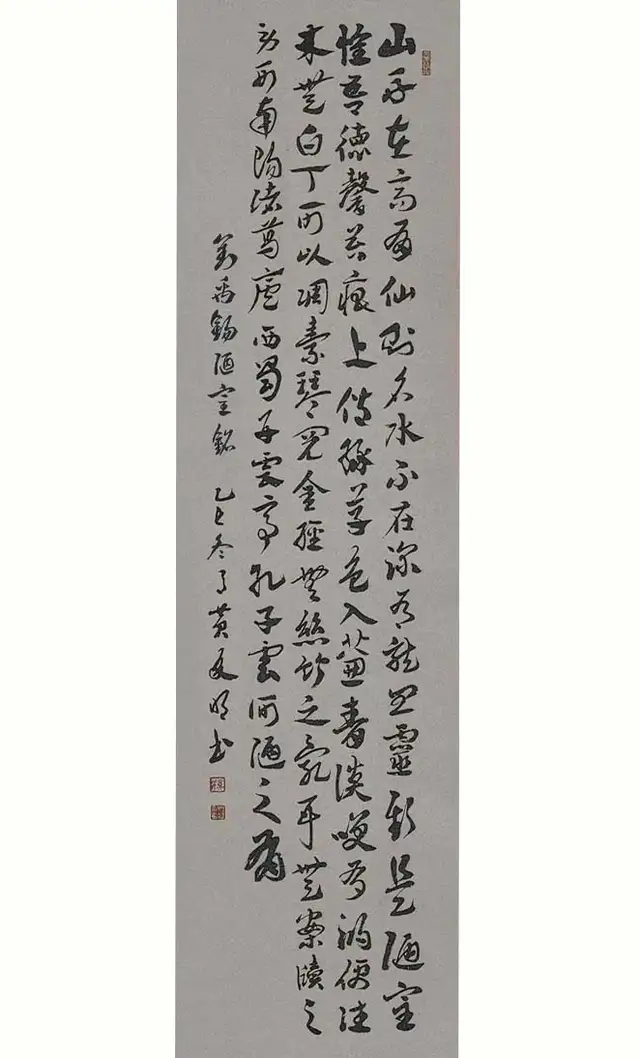 山不在高有仙則名水不在深有龍則靈斯是陋室
惟吾德馨苔痕上階綠草色入簾青談笑有鴻儒往
來無白丁可以調素琴閱金經無絲竹之亂耳無案牘之
勞形南陽諸葛廬西蜀子雲亭孔子雲何陋之有
劉禹錫陋室銘 乙巳冬月黃友明書